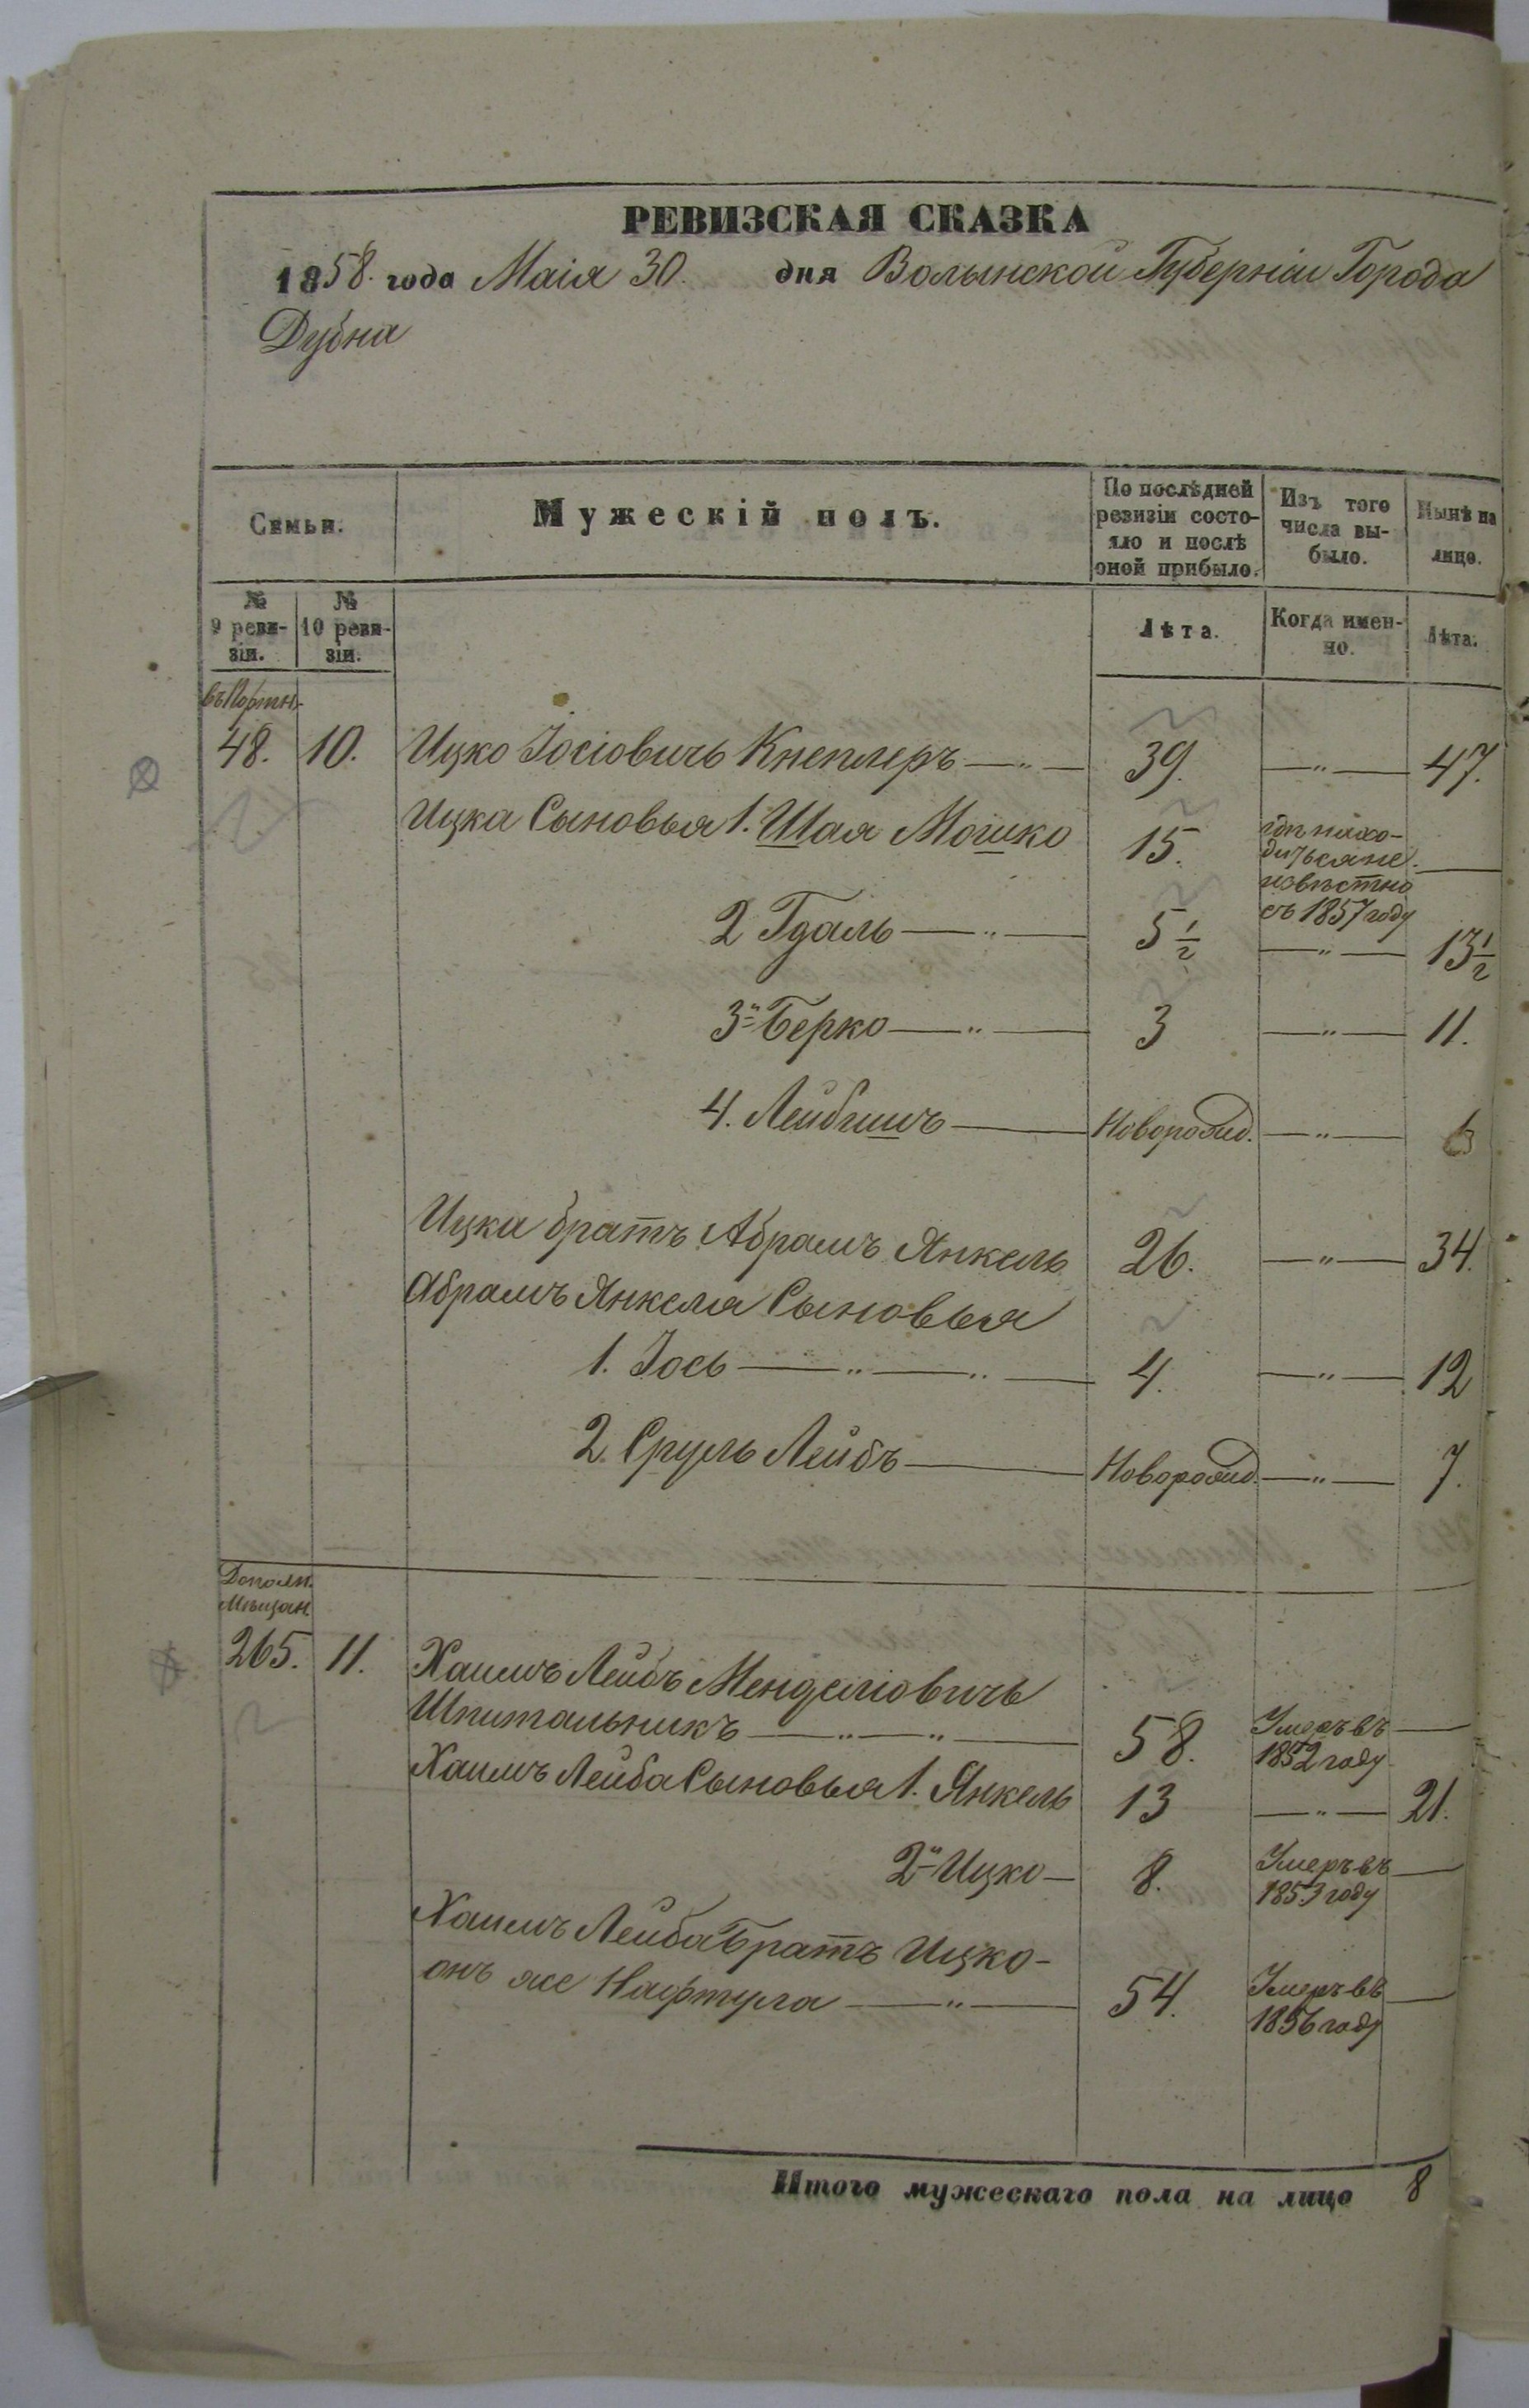 РЕВИЗСКАЯ СКАЗКА
1858. года Маія 30. дня Волынской Губерніи Города
Дубна
Семьи.
Мужескій полъ.
По послѣдней ревизіи состояло и послѣ оной прибыло.
Изъ того числа выбыло.
Нынѣ на лицо.
№ 9 ревизіи.
№ 10 ревизіи.
Лѣта.
Когда именно.
Лѣта.
48. 10. Ицко Іосіовичь Кнеплеръ — " — 39. — " — 47.
Ицка Сыновья 1. Шая Мошко 15. гдѣ находиться не извѣстно съ 1857 году —
2 Гдаль — " — 5 1/2 — " — 13 1/2
3й Берко — " — 3 — " — 11.
4. Лейбишъ — Новорожд. — " — 6
Ицка братъ Абрамъ Янкель 26. — " — 34.
Абрамъ Янкеля Сыновья
1. Іось — " — " — 4. — " — 12
2. Сруль Лейбъ — Новорожд. — " — 7.
Дополн.
Мѣщан.
265. 11. Хаимъ Лейбъ Менделіовичь
Шпитальникъ — " — " — 58. Умеръ въ 1852 году —
Хаимъ Лейба Сыновья 1. Янкель 13 — " — 21.
2й Ицко — 8. Умеръ въ 1853 году —
Хаимъ Лейба Братъ Ицко-
онъ же Нафтула — " — 54. Умеръ въ 1856 году —
Итого мужескаго пола на лицо 8